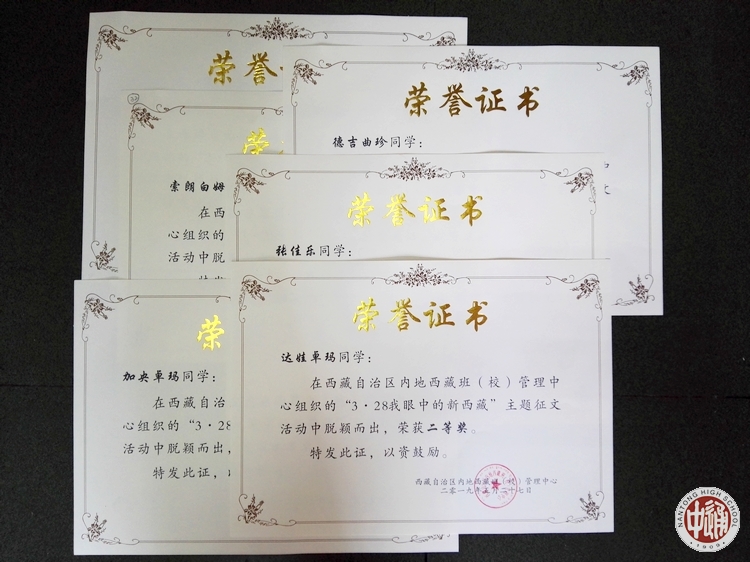 荣誉
荣誉证书
德吉曲珍同学：
荣
索朗白姆
在西
心组织的
活动中脱
荣誉证书
张佳乐同学：
荣
加央卓玛同学：
在西藏自治
心组织的“3·28
活动中脱颖而出，
特发此证，
荣誉证书
达娃卓玛同学：
在西藏自治区内地西藏班（校）管理中
心组织的“3·28我眼中的新西藏”主题征文
活动中脱颖而出，荣获二等奖。
特发此证，以资鼓励。
西藏自治区内地西藏班（校）管理中心
二零一九年五月二十七日
NANTONG HIGH SCHOOL
中通
1909